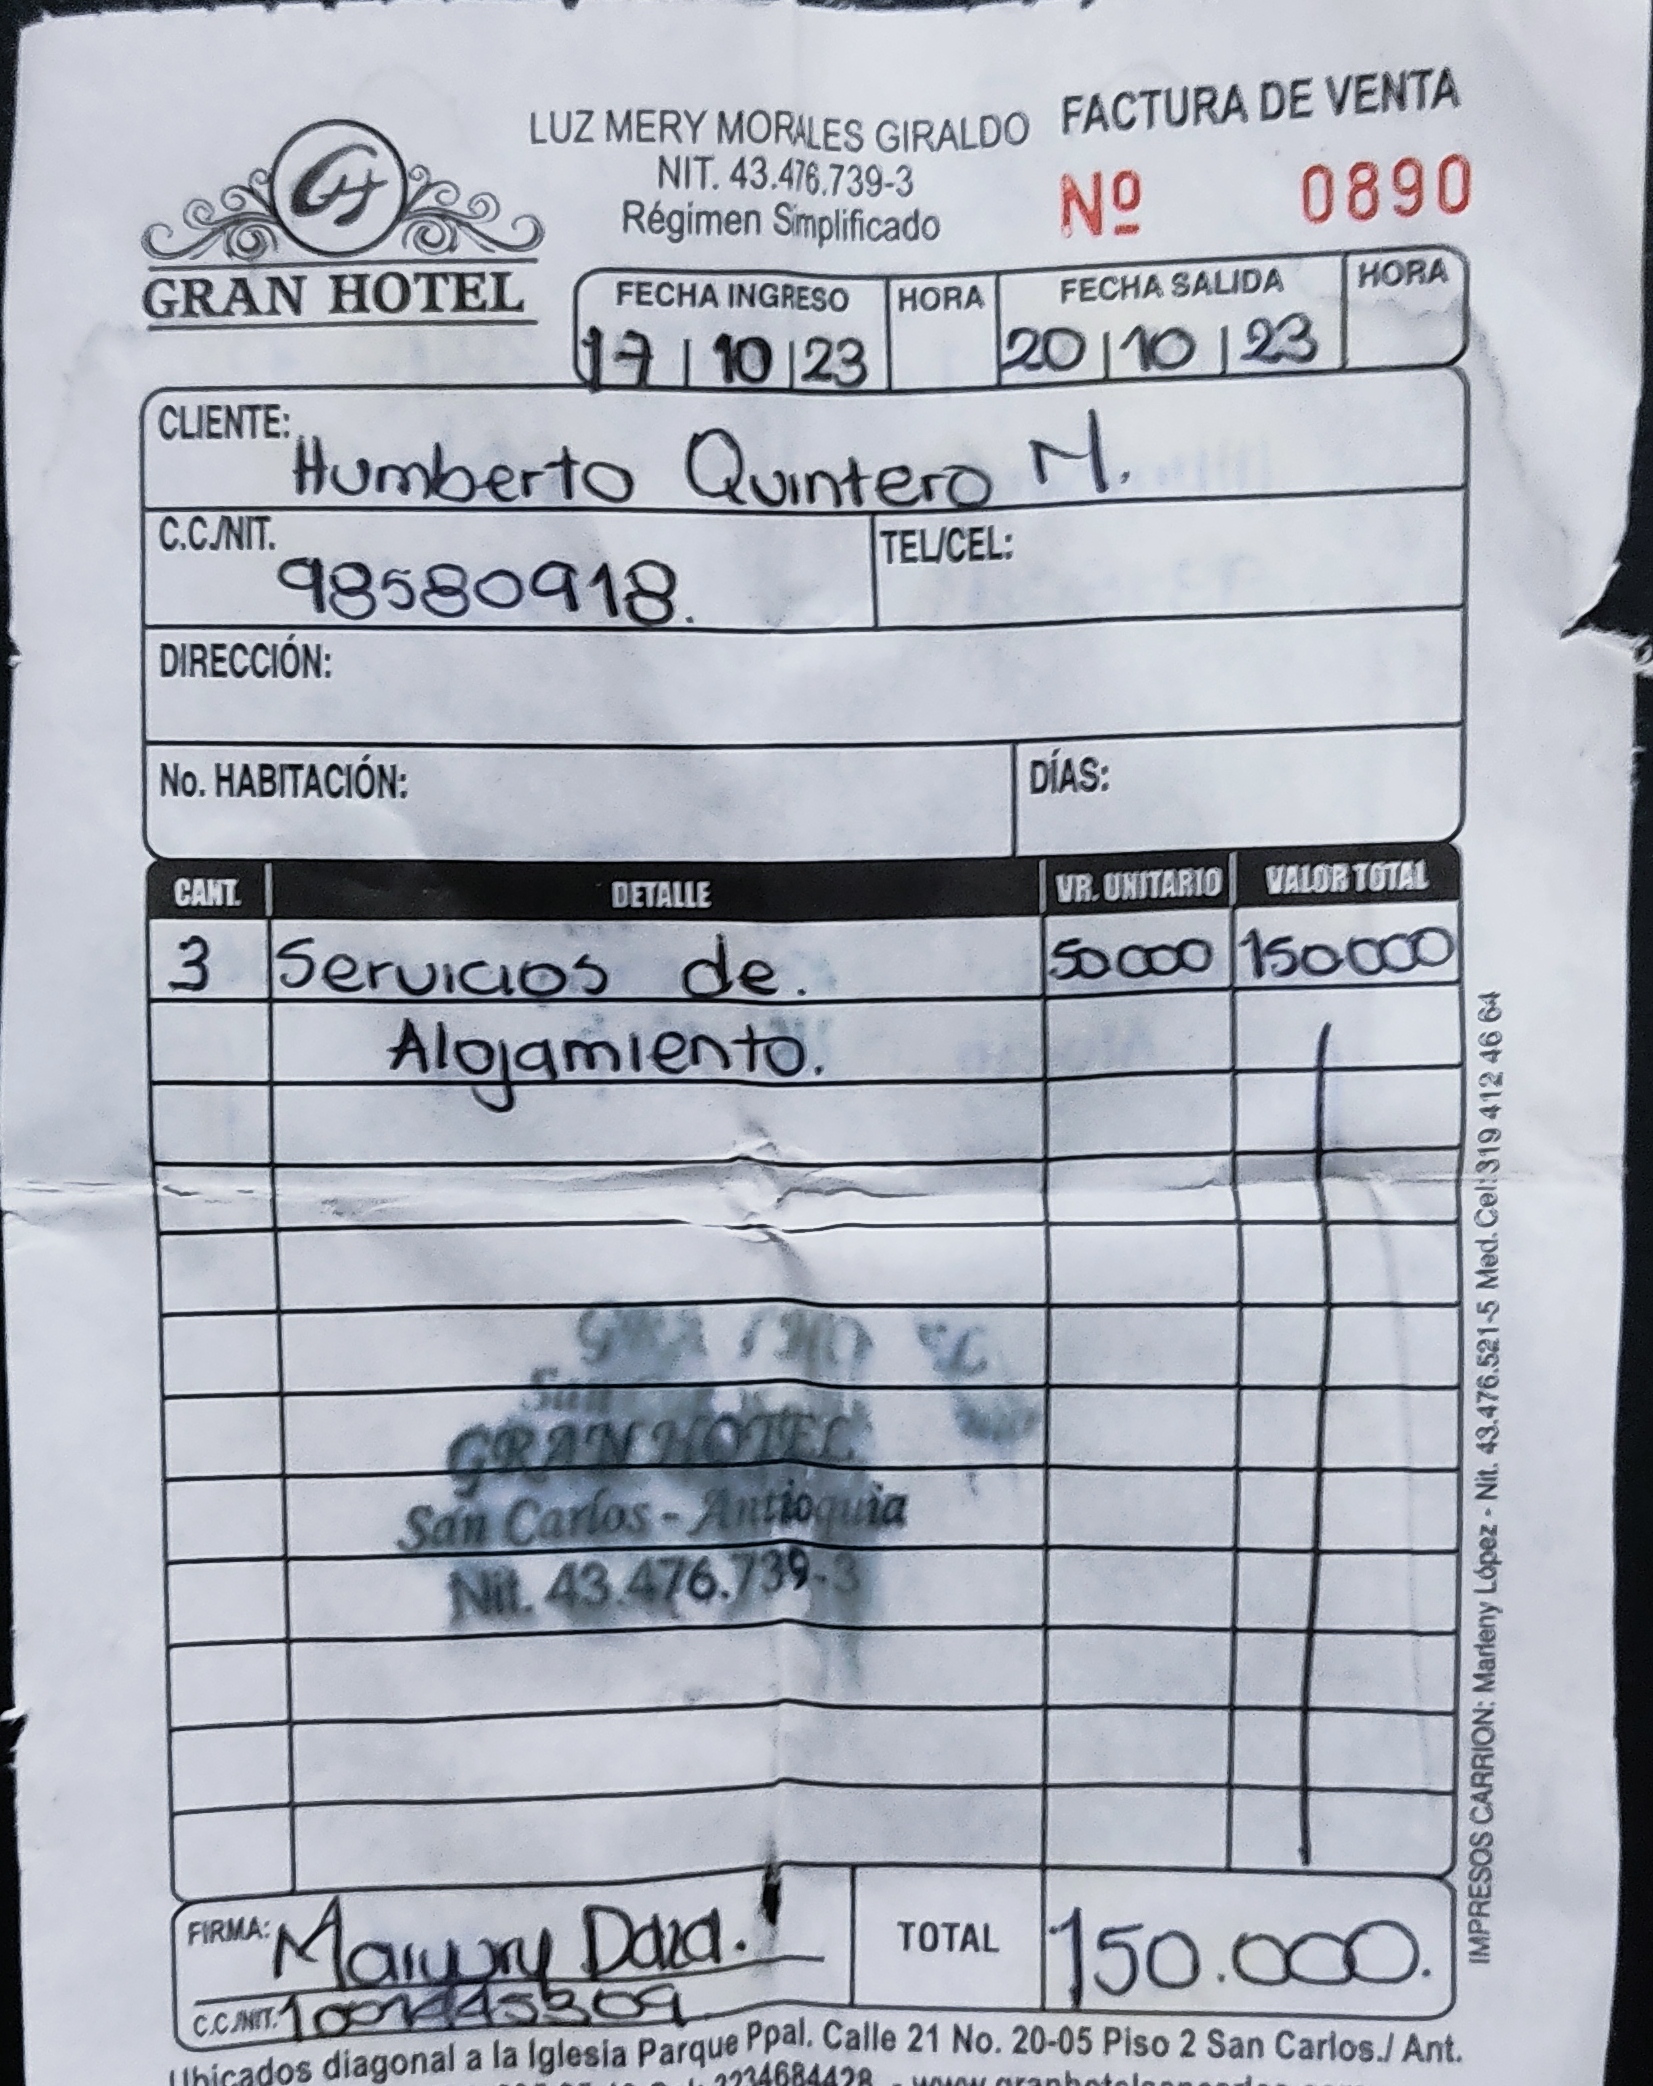 LUZ MERY MORALES GIRALDO
NIT. 43.476.739-3
Régimen Simplificado
FACTURA DE VENTA
Nº 0890
GH
GRAN HOTEL
FECHA INGRESO HORA FECHA SALIDA HORA
17 | 10 | 23 20 | 10 | 23
CLIENTE: Humberto Quintero M.
C.C./NIT. 98580918. TEL/CEL:
DIRECCIÓN:
No. HABITACIÓN: DÍAS:
CANT. DETALLE VR. UNITARIO VALOR TOTAL
3 Servicios de. 50000 150000
Alojamiento.
GRAN HOTEL
San Carlos - Antioquia
Nit. 43.476.739-3
FIRMA: Daza. TOTAL 150.000.
C.C./NIT:
Ubicados diagonal a la Iglesia Parque Ppal. Calle 21 No. 20-05 Piso 2 San Carlos./ Ant.
IMPRESOS CARRION: Marleny López - Nit. 43.476.521-5 Med. Cel:319 412 46 64